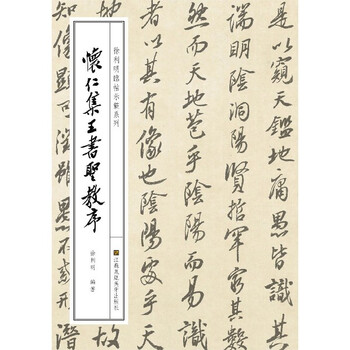 是以窺天鑑地庸愚皆識其
端明陰洞陽賢哲罕窮其數
然而天地苞乎陰陽而易識
者以其有像也陰陽處乎天
故
知像顯可徵雖愚不惑形潛
徐利明臨帖示範系列
懷仁集王書聖教序
徐利明 編著
江蘇鳳凰美術出版社